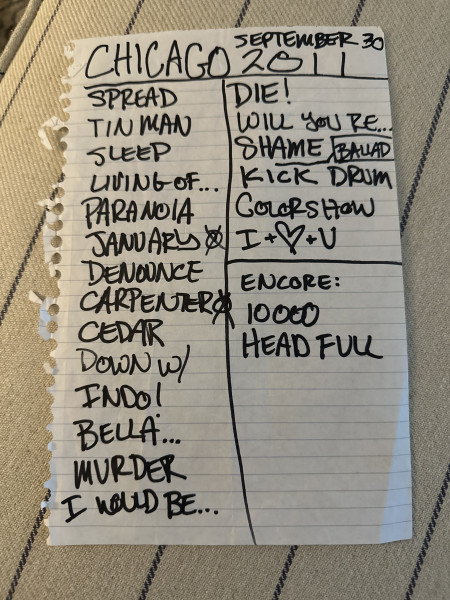 CHICAGO SEPTEMBER 30
2011
SPREAD
TIN MAN
SLEEP
LIVING OF...
PARANOIA
JANUARY
DENOUNCE
CARPENTER
CEDAR
DOWN W/
INDO!
BELLA...
MURDER
I WOULD BE...
DIE!
WILL YOU RE...
SHAME/BALLAD
KICK DRUM
COLORSHOW
I+♡+U
ENCORE:
10000
HEAD FULL